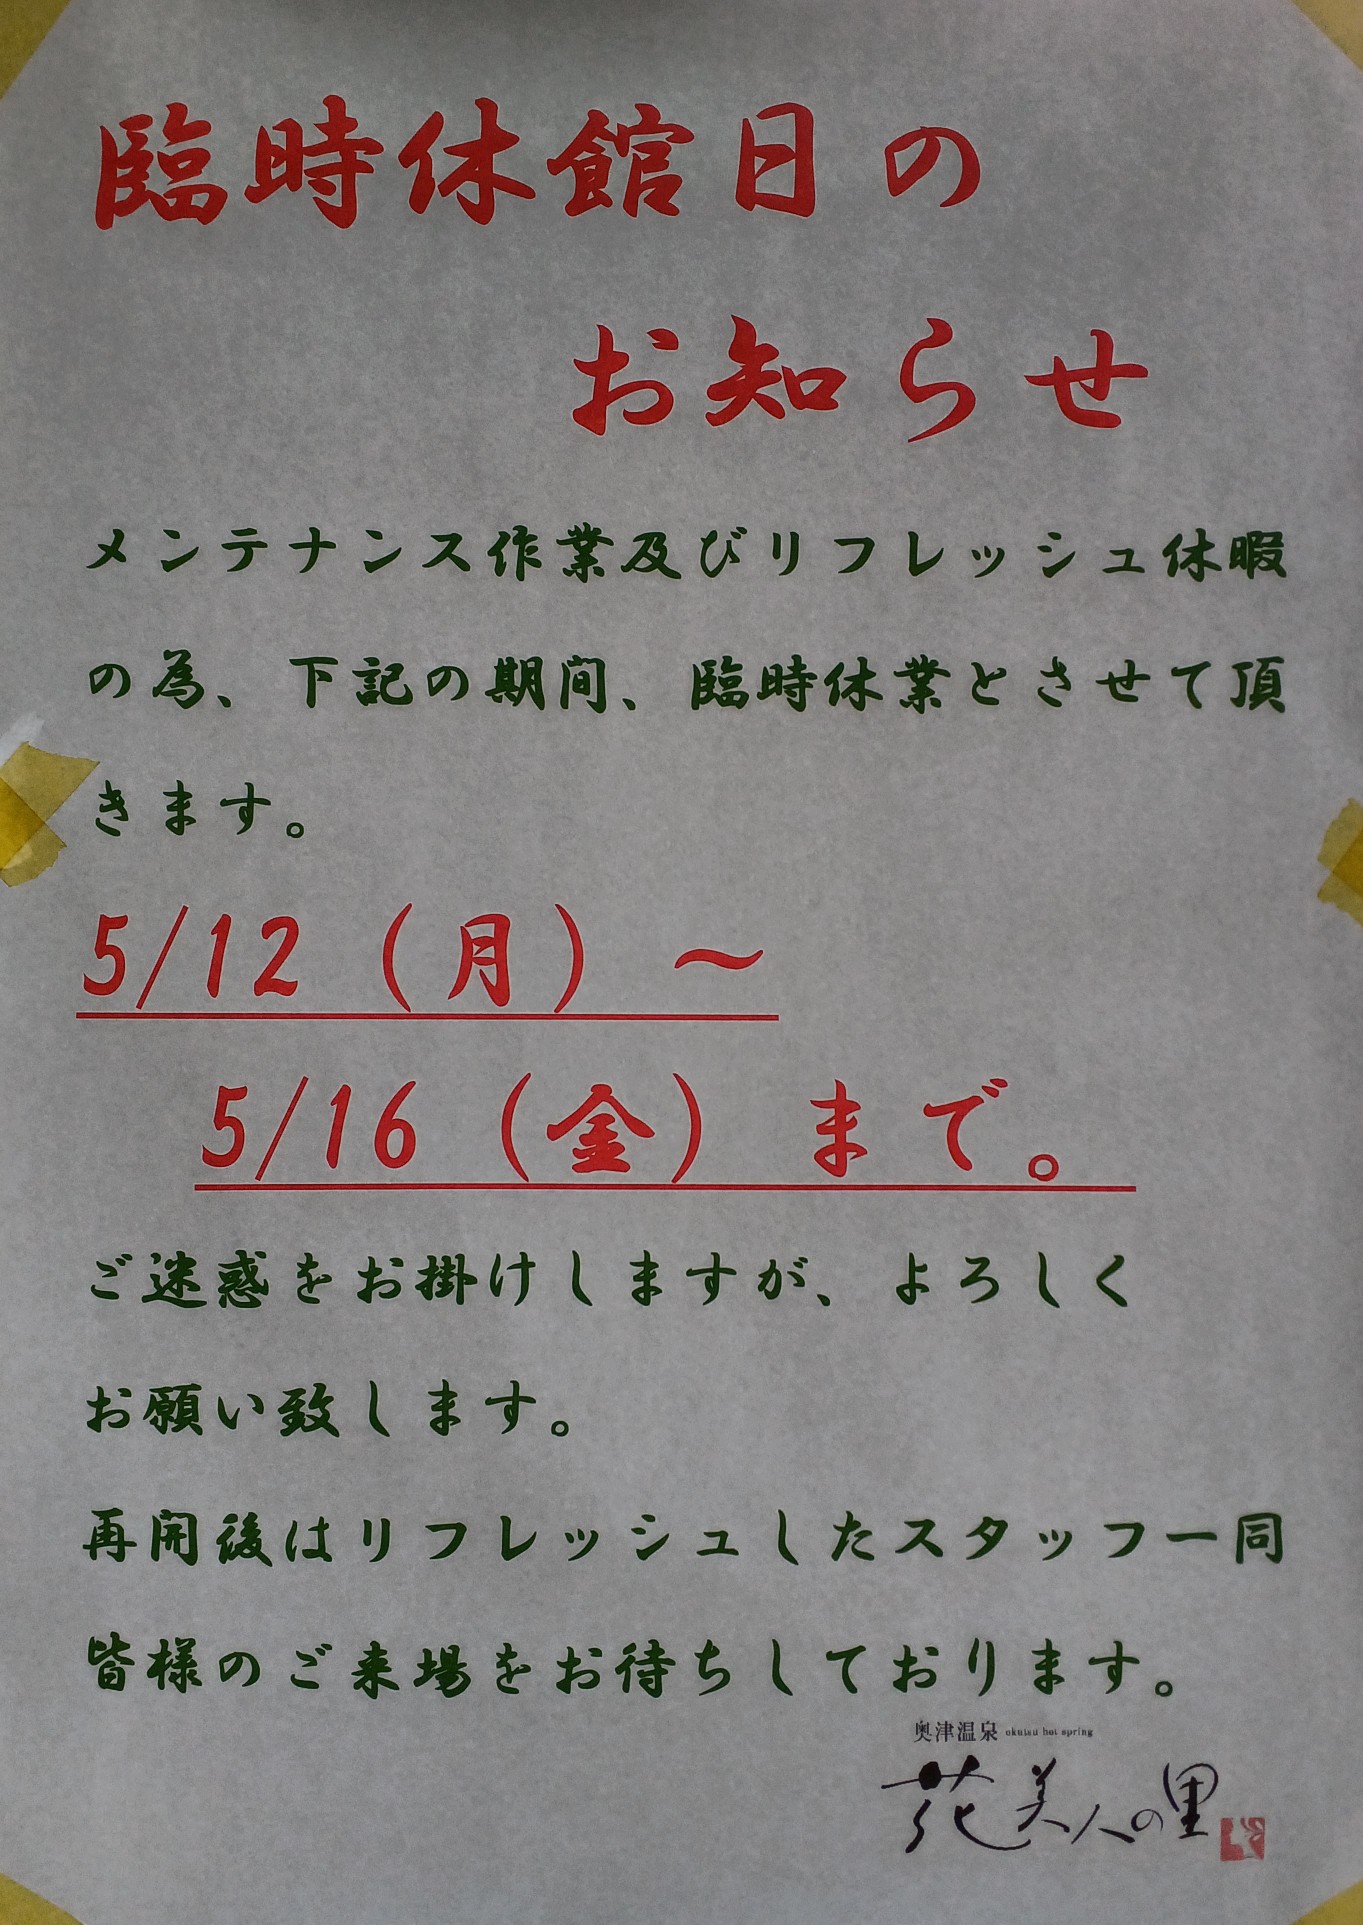 臨時休館日の
お知らせ
メンテナンス作業及びリフレッシュ休暇
の為、下記の期間、臨時休業とさせて頂
きます。
5/12（月）～
5/16（金）まで。
ご迷惑をお掛けしますが、よろしく
お願い致します。
再開後はリフレッシュしたスタッフ一同
皆様のご来場をお待ちしております。
奥津温泉 okutsu hot spring
花美人の里